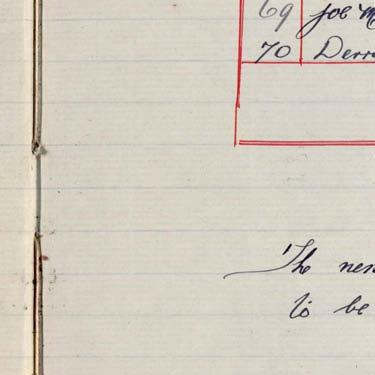 69 Joe M
70 Derr
The nex
to be